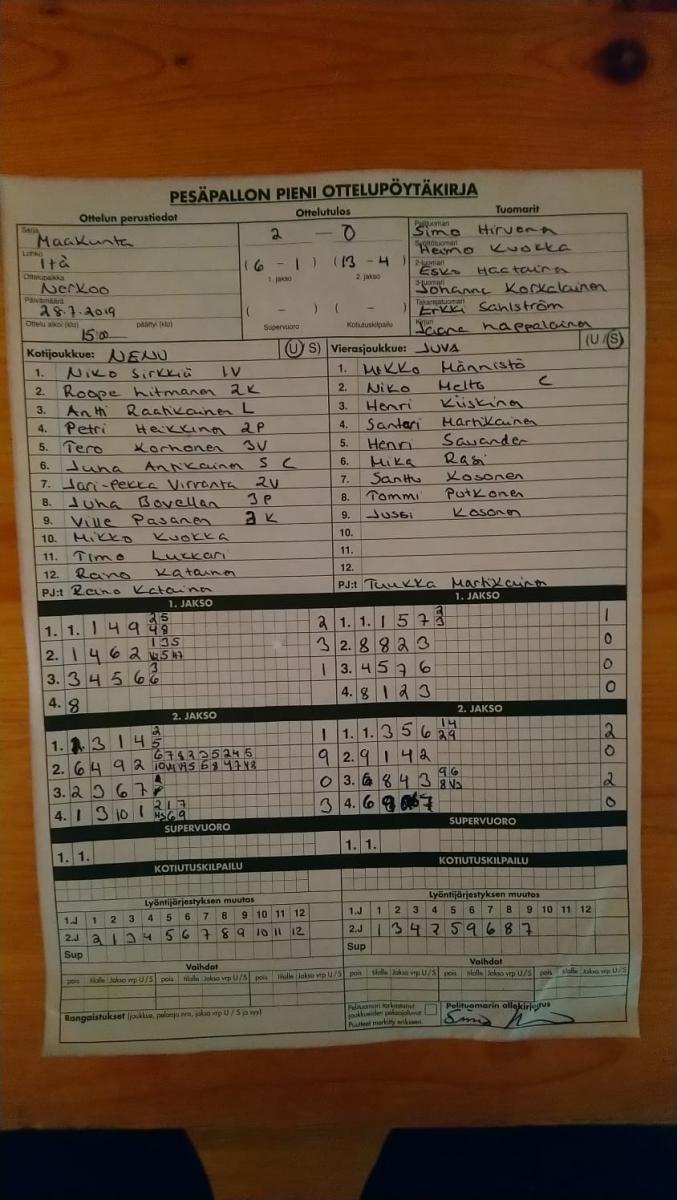 PESÄPALLON PIENI OTTELUPÖYTÄKIRJA
Ottelun perustiedot Ottelutulos Tuomarit
Sarja Maakunta
Lohko Itä
Ottelupaikka Nerkoo
Päivämäärä 28.7.2019
Ottelu alkoi (klo) päättyi (klo)
15:00
2 – 0
(6 – 1) (13 – 4)
1. jakso 2. jakso
( – ) ( – )
Supervuoro Kotiutuskilpailu
Pelituomari Simo Hirvonen
Syöttötuomari Heimo Kuokka
2-tuomari Esko Haatainen
3-tuomari Johanna Korkalainen
Takarajatuomari Erkki Sahlström
Kirjuri Jaana Happalainen
Kotijoukkue: NENU (U/S)
1. Niko Sirkkiä 1V
2. Roope Hitmanen 2K
3. Antti Raatikainen L
4. Petri Heikkinen 2P
5. Tero Korhonen 3V
6. Juha Antikainen S C
7. Jari-Pekka Virranta 2V
8. Juha Bovellan 3P
9. Ville Pasanen 3K
10. Mikko Kuokka
11. Timo Lukkari
12. Raino Katainen
PJ:t Raino Katainen
Vierasjoukkue: JUVA (U/S)
1. Mikko Männistö
2. Niko Melto C
3. Henri Kiiskinen
4. Santeri Martikainen
5. Henri Savander
6. Mika Rasi
7. Santtu Kosonen
8. Tommi Putkonen
9. Jussi Kosonen
10.
11.
12.
PJ:t Tuukka Martikainen
1. JAKSO
1. 1. 1 4 9 2
2. 1 4 6 2 3
3. 3 4 5 6 1
4. 8
1. JAKSO
1. 1. 1 5 7 1
2. 8 8 2 3 0
3. 4 5 7 6 0
4. 8 1 2 3 0
2. JAKSO
1. 3 1 4 1
2. 6 4 9 2 9
3. 2 3 6 7 0
4. 1 3 10 1 3
2. JAKSO
1. 1. 3 5 6 2
2. 9 1 4 2 0
3. 8 4 3 2
4. 6 0
SUPERVUORO
1. 1.
SUPERVUORO
1. 1.
KOTIUTUSKILPAILU
KOTIUTUSKILPAILU
Lyöntijärjestyksen muutos
1.J 1 2 3 4 5 6 7 8 9 10 11 12
2.J 2 1 3 4 5 6 7 8 9 10 11 12
Sup
Lyöntijärjestyksen muutos
1.J 1 2 3 4 5 6 7 8 9 10 11 12
2.J 1 3 4 2 5 9 6 8 7
Sup
Vaihdot
pois tilalle Jakso vrp U/S pois tilalle Jakso vrp U/S pois tilalle Jakso vrp U/S
Vaihdot
pois tilalle Jakso vrp U/S pois tilalle Jakso vrp U/S pois tilalle Jakso vrp U/S
Rangaistukset (joukkue, pelaaja nro, jakso vrp U / S ja syy)
Pelituomari tarkastanut
joukkueiden pelaajaluvat
Puutteet merkitty erikseen.
Pelituomarin allekirjoitus